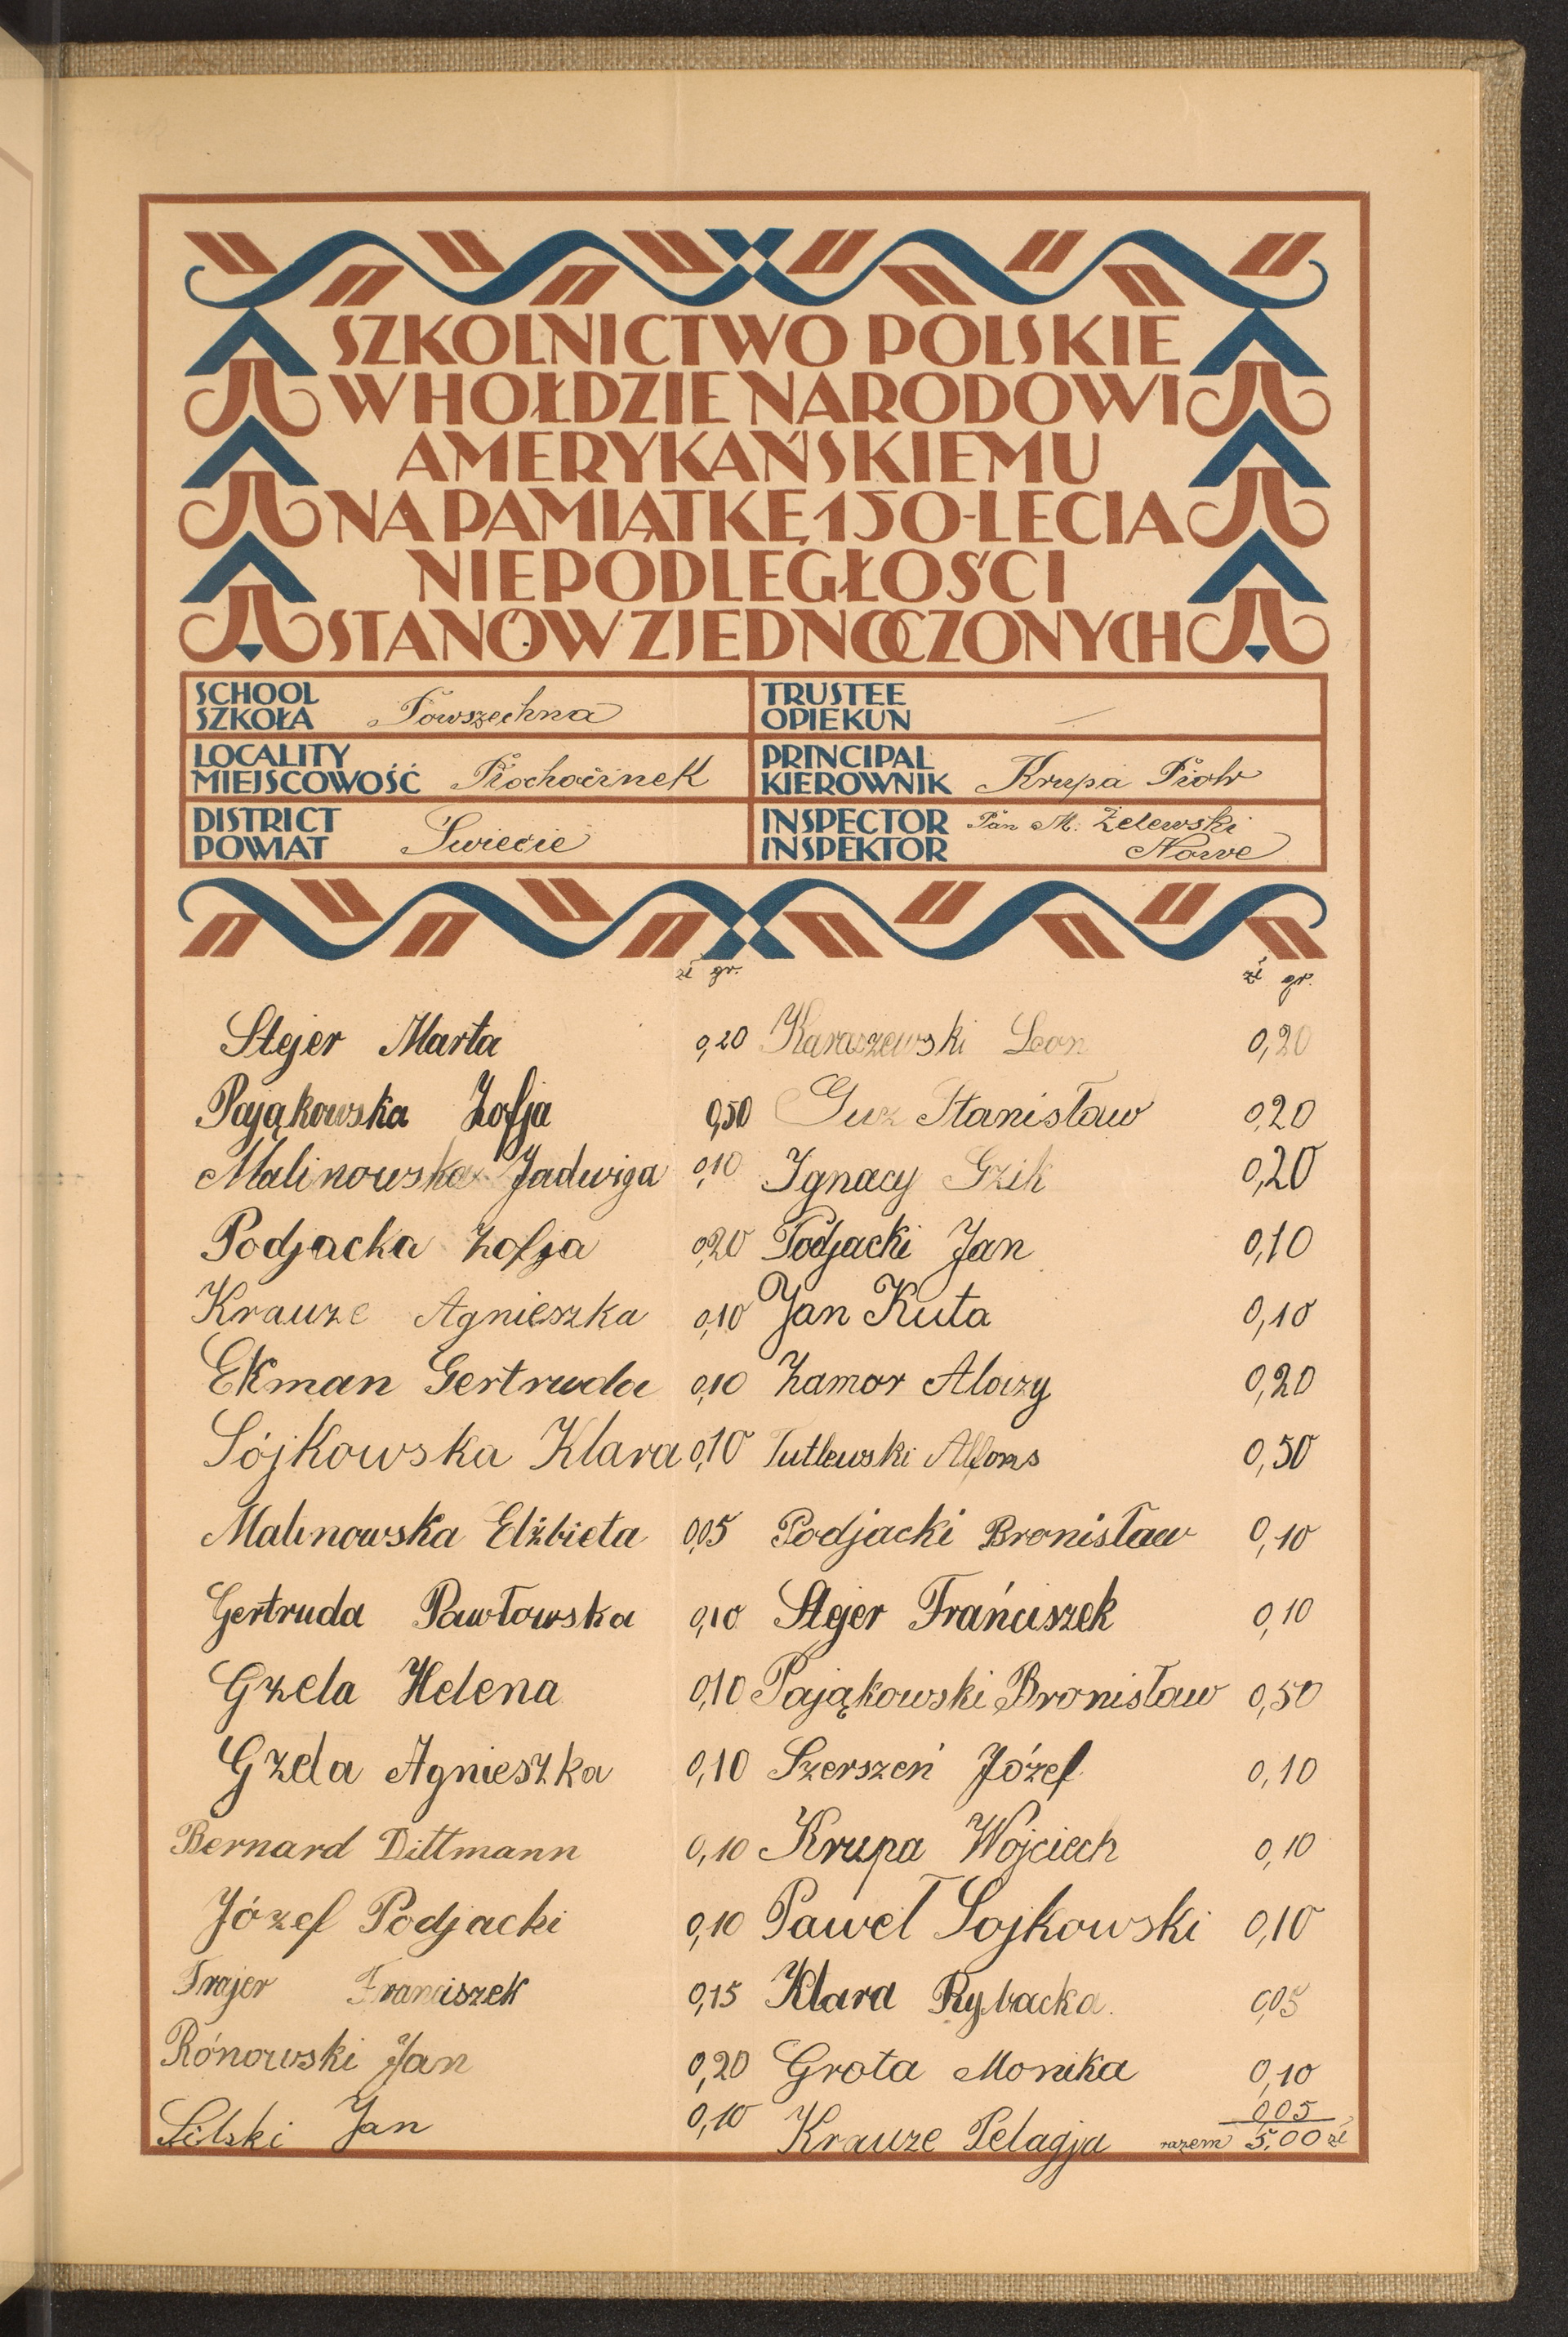 SZKOLNICTWO POLSKIE
W HOŁDZIE NARODOWI
AMERYKAŃSKIEMU
NA PAMIĄTKĘ 150-LECIA
NIEPODLEGŁOŚCI
STANÓW ZJEDNOCZONYCH
SCHOOL
SZKOŁA Powszechna
TRUSTEE
OPIEKUN —
LOCALITY
MIEJSCOWOŚĆ Płochocinek
PRINCIPAL
KIEROWNIK Krupa Piotr
DISTRICT
POWIAT Świecie
INSPECTOR Pan M. Żelewski
INSPEKTOR Nowe
zł gr.
zł gr.
Stejer Marta 0,20
Pająkowska Zofja 0,50
Malinowska Jadwiga 0,10
Podjacka Zofja 0,20
Krauze Agnieszka 0,10
Ekman Gertruda 0,10
Sójkowska Klara 0,10
Malinowska Elżbieta 0,05
Gertruda Pawłowska 0,10
Gzela Helena 0,10
Gzela Agnieszka 0,10
Bernard Dittmann 0,10
Józef Podjacki 0,10
Trajer Franciszek 0,15
Rónowski Jan 0,20
Silski Jan 0,10
Karaszewski Leon 0,20
Guz Stanisław 0,20
Ignacy Gzik 0,20
Podjacki Jan 0,10
Jan Kuta 0,10
Zamor Aloizy 0,20
Tutlewski Alfons 0,50
Podjacki Bronisław 0,10
Stejer Frańciszek 0,10
Pająkowski Bronisław 0,50
Szerszeń Józef 0,10
Krupa Wojciech 0,10
Paweł Sojkowski 0,10
Klara Rybacka. 0,05
Grota Monika 0,10
Krauze Pelagja 0,05
razem 5,00 zł